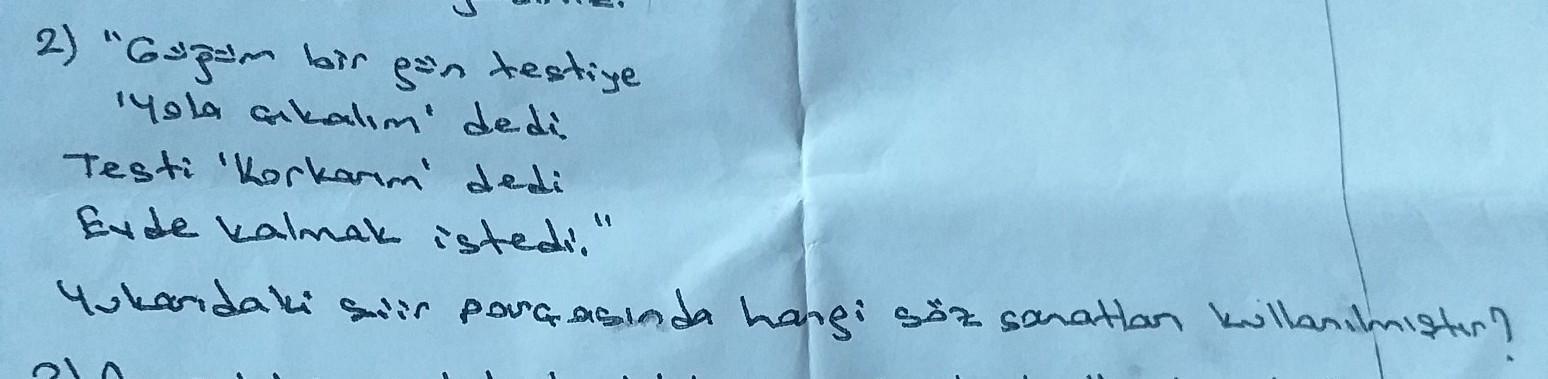 2) "Güğüm bir gün testiye
'Yola çıkalım' dedi.
Testi 'Korkarım' dedi
Evde kalmak istedi."
Yukarıdaki şiir parçasında hangi söz sanatları kullanılmıştır?